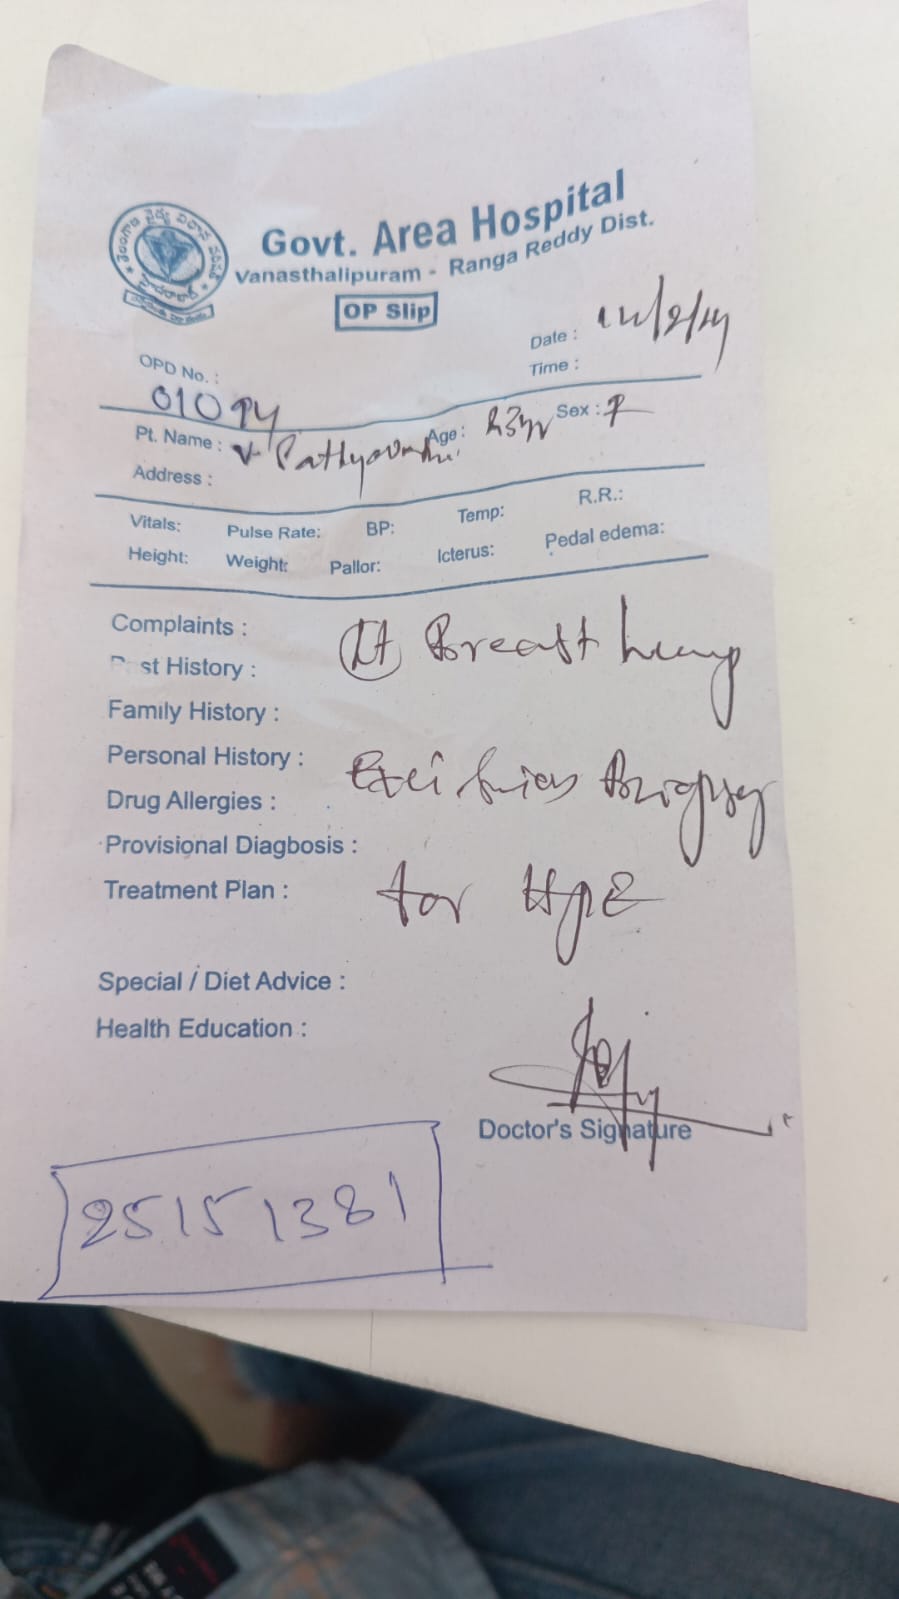 Govt. Area Hospital
Vanasthalipuram - Ranga Reddy Dist.
OP Slip
Date :
OPD No. : Time :
Pt. Name : V. Age : Sex : F
Address :
Vitals: Pulse Rate: BP: Temp: R.R.:
Height: Weight: Pallor: Icterus: Pedal edema:
Complaints : Lt Breast lump
Past History :
Family History :
Personal History : Biopsy
Drug Allergies :
Provisional Diagbosis :
Treatment Plan : for HPE
Special / Diet Advice :
Health Education :
Doctor's Signature
25151381